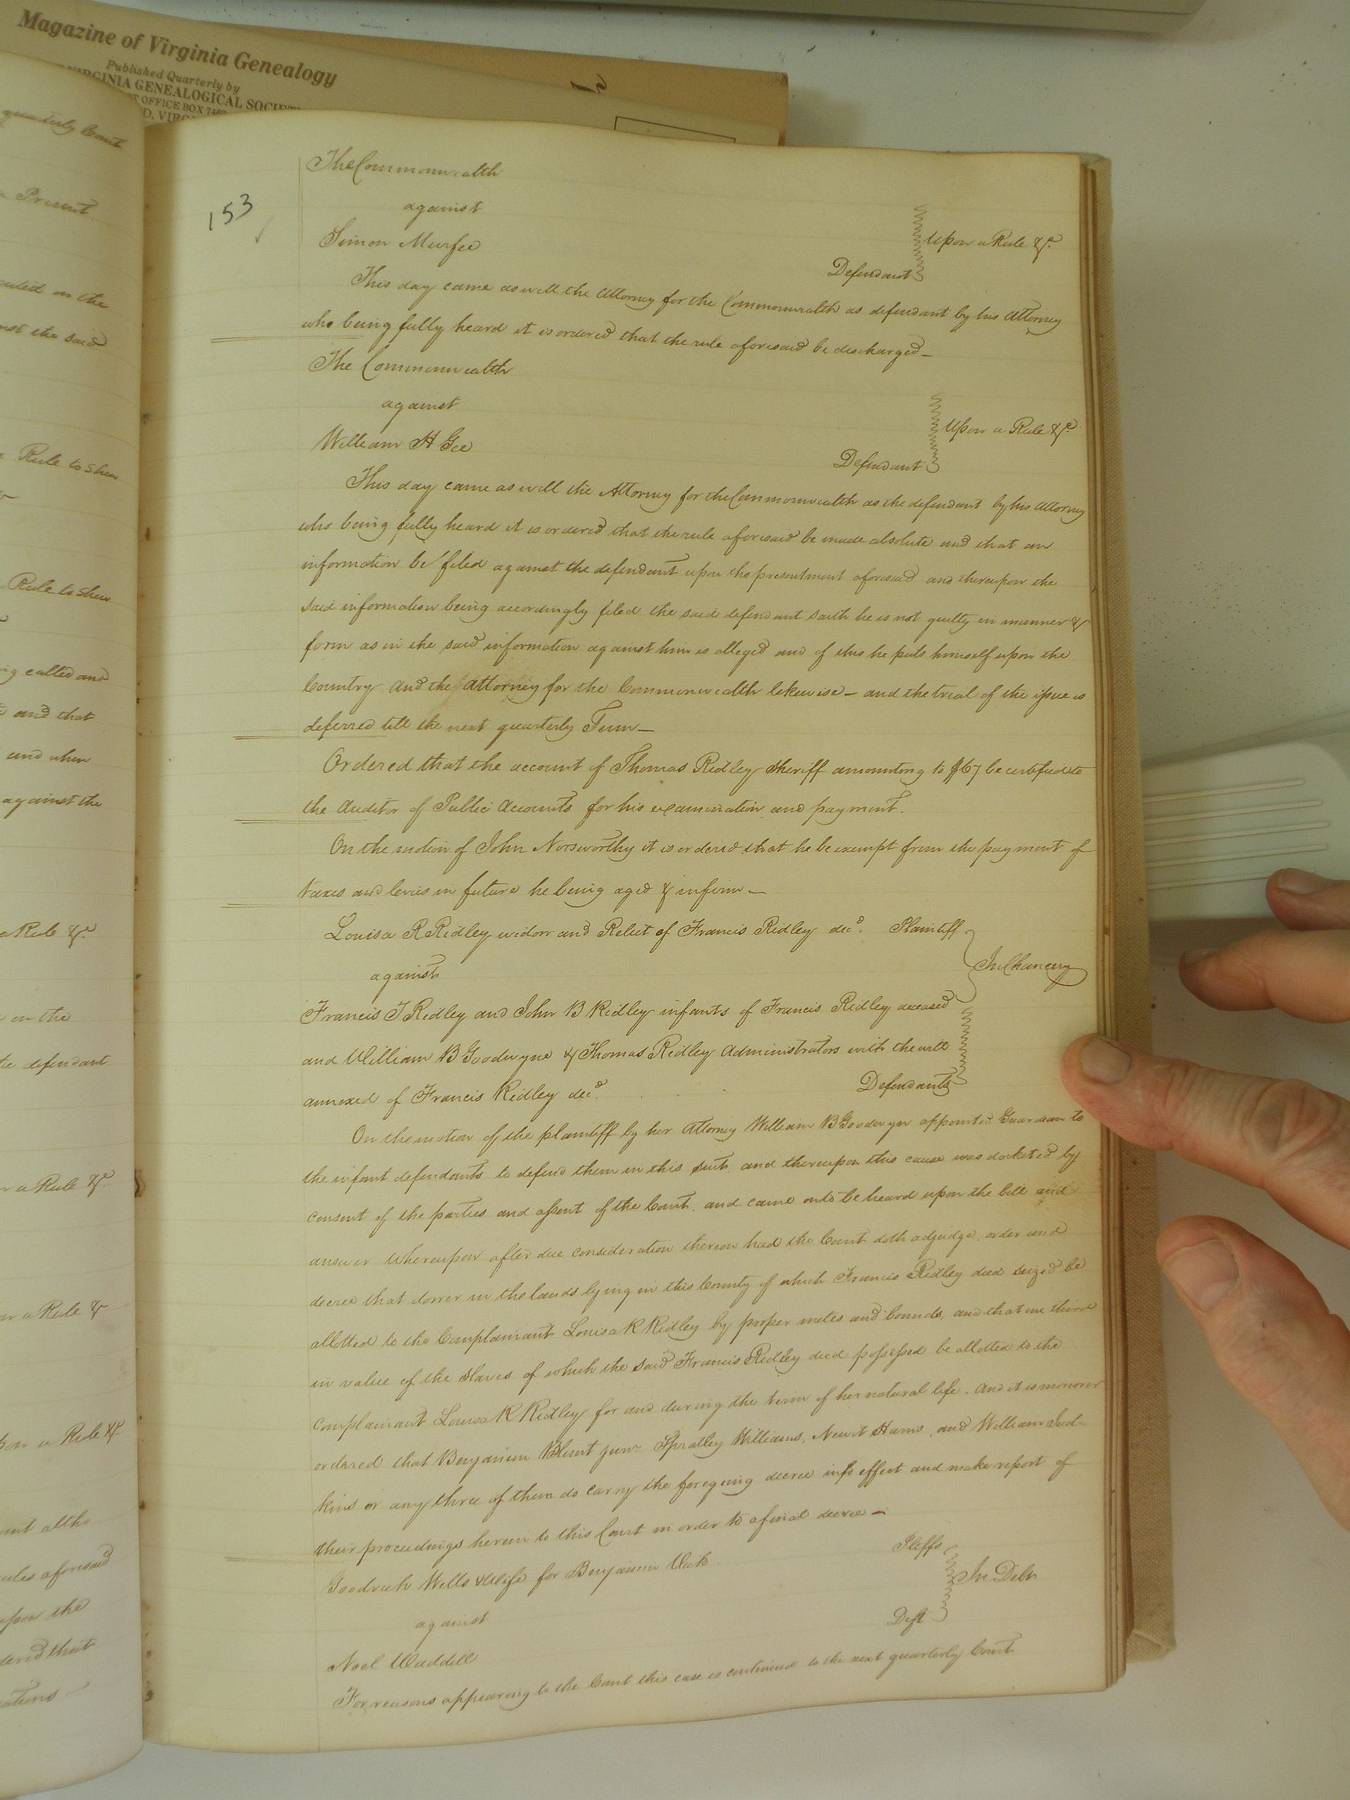 Magazine of Virginia Genealogy
Published Quarterly by
VIRGINIA GENEALOGICAL SOCIETY
OFFICE BOX
quarterly Court
Present
on the
the said
Rule to shew
Rule to shew
called and
and that
and when
against the
a Rule &c
on the
defendant
a Rule &c
a Rule &
a Rule &c
aforesaid
upon the
that
153
The Commonwealth
against
Simon Murfee
Defendant
Upon a Rule &c.
This day came as well the Attorney for the Commonwealth as defendant by his Attorney
who being fully heard it is ordered that the rule aforesaid be discharged—
The Commonwealth
against
William H Gee
Defendant
Upon a Rule &c.
This day came as well the Attorney for the Commonwealth as the defendant by his Attorney
who being fully heard it is ordered that the rule aforesaid be made absolute and that an
information be filed against the defendant upon the presentment aforesaid and thereupon the
said information being accordingly filed the said defendant saith he is not guilty in manner &
form as in the said information against him is alleged and of this he puts himself upon the
Country and the Attorney for the Commonwealth likewise— and the trial of the issue is
deferred till the next quarterly Term—
Ordered that the account of Thomas Ridley Sheriff amounting to $67 be certified to
the Auditor of Public Accounts for his examination and payment.
On the motion of John Norsworthy it is ordered that he be exempt from the payment of
taxes and levies in future he being aged & infirm—
Louisa R Ridley widow and Relict of Francis Ridley decd. Plaintiff
against
In Chancery
Francis T Ridley and John B Ridley infants of Francis Ridley deceased
and William B Goodwyne & Thomas Ridley Administrators with the will
annexed of Francis Ridley decd.
Defendants
On the motion of the plaintiff by her Attorney William B Goodwyn appointed Guardian to
the infant defendants to defend them in this suit, and thereupon this cause was docketed by
consent of the parties and assent of the Court, and came on to be heard upon the bill and
answer Whereupon after due consideration thereon had the Court doth adjudge, order and
decree that dower in the lands lying in this County of which Francis Ridley died seized be
allotted to the Complainant Louisa R Ridley by proper metes and bounds, and that one third
in value of the slaves of which the said Francis Ridley died possessed be allotted to the
complainant Louisa R Ridley for and during the term of her natural life. And it is moreover
ordered that Benjamin Blunt junr Spratley Williams, Newit Harris, and William Jud-
kins or any three of them do carry the foregoing decree into effect and make report of
their proceedings herein to this Court in order to a final decree—
Goodrich Wells & Wife for Benjamin Vick
Pltffs
against
In Debt
Deft
Noel Waddell
For reasons appearing to the Court this case is continued to the next quarterly Court